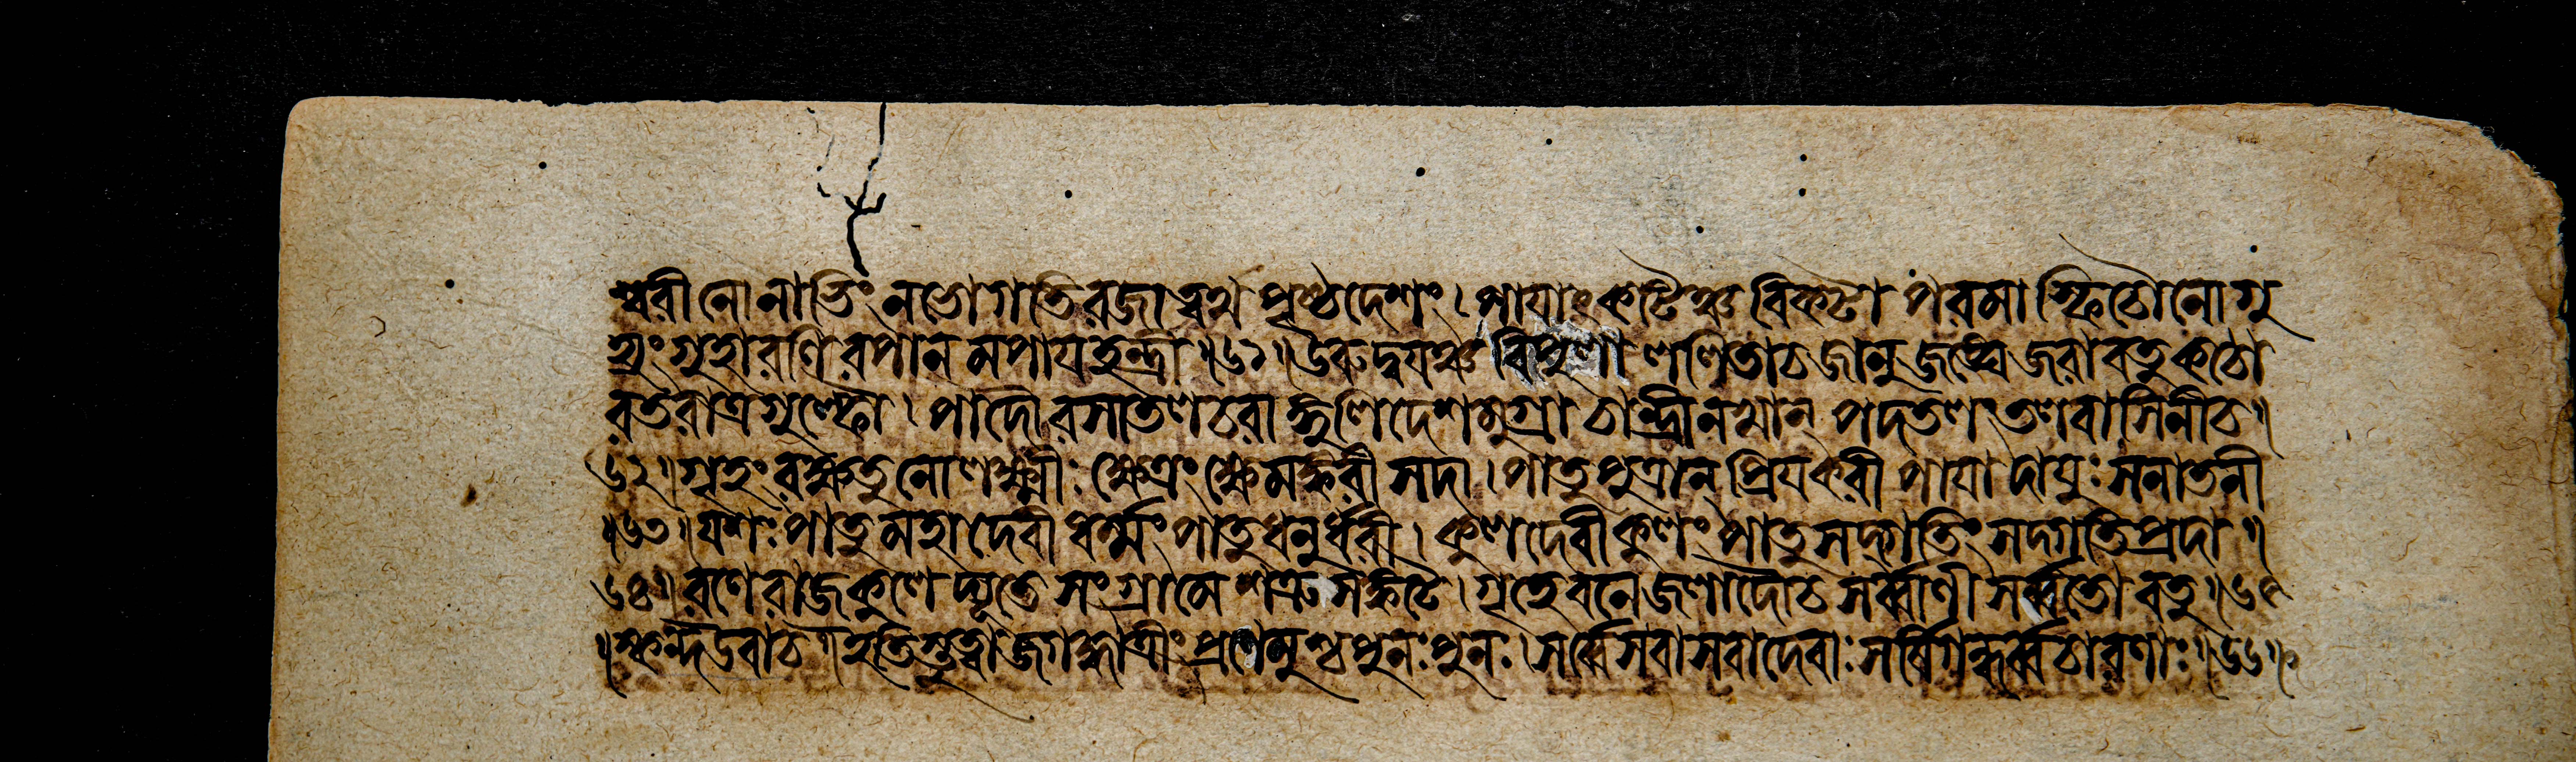 শ্বরী নো নাভিং নভোগতিরজা ত্বথ পৃষ্ঠদেশং। পাযাৎ কটিঞ্চ বিকটা পরমা স্ফিচৌ নো গু
হ্যং গুহারণিরপানমপাযহন্ত্রী॥৬১॥ ঊরুদ্বযঞ্চ বিপুলা ললিতা চ জানু জঙ্ঘে জবাবতু কঠো
রতরাত্র গুল্ফৌ। পাদৌ রসাতলচরাঙ্গুলিদেশমুগ্রা চান্দ্রী নখান্ পদতলং তলবাসিনী চ॥
৬২॥ গৃহং রক্ষতু নো লক্ষ্মীঃ ক্ষেত্রং ক্ষেমঙ্করী সদা। পাতু পুত্রান্ প্রিযকরী পাযাদাযুঃ সনাতনী
॥৬৩॥ যশঃ পাতু মহাদেবী ধর্ম্মং পাতু ধনুর্ধরী। কুলদেবী কুলং পাতু সদ্গতিং সদ্গতিপ্রদা॥
৬৪॥ রণে রাজকুলে দ্যূতে সংগ্রামে শত্রুসঙ্কটে। গৃহে বনে জলাদৌ চ সর্ব্বাণী সর্ব্বতো বতু॥৬৫
॥স্কন্দ উবাচ॥ ইতি স্তুত্বা জগদ্ধাত্রীং প্রণেমুশ্চ পুনঃ পুনঃ। সর্ব্বে সবাসবা দেবাঃ সর্ষিগন্ধর্ব্বচারণাঃ॥৬৬॥